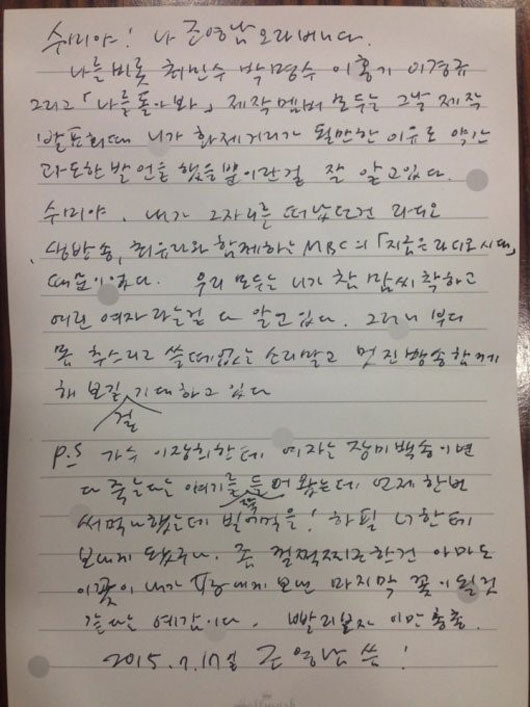 수미야! 나 조영남 오라버니다.
나를 비롯 최민수 박명수 이홍기 이경규
그리고 「나를 돌아봐」 제작멤버 모두는 그날 제작
발표회때 니가 화제거리가 될만한 이유로 약간
과도한 발언을 했을뿐이란걸 잘 알고있다.
수미야, 내가 그자리를 떠났던건 라디오
생방송, 최유라와 함께하는 MBC의 「지금은 라디오시대」
때문이었다. 우리 모두는 니가 참 맘씨 착하고
여린 여자라는걸 다 알고있다. 그러니 부디
몸 추스리고 쓸데없는 소리말고 멋진방송 함께
해 보길 기대하고 있다
걸
P.S 가수 이장희한테 여자는 장미백송이면
다 죽는다는 얘기를 들어 왔는데 언제 한번
쭉
써먹나했는데 빌어먹을! 하필 너한테
보내게 됐구나. 좀 껄쩍찌근한건 아마도
이꽃이 내가 여자에게 보낸 마지막 꽃이 될것
같다는 예감이다. 빨리보자 이만 총총.
2015.7.17일 조영남 씀!